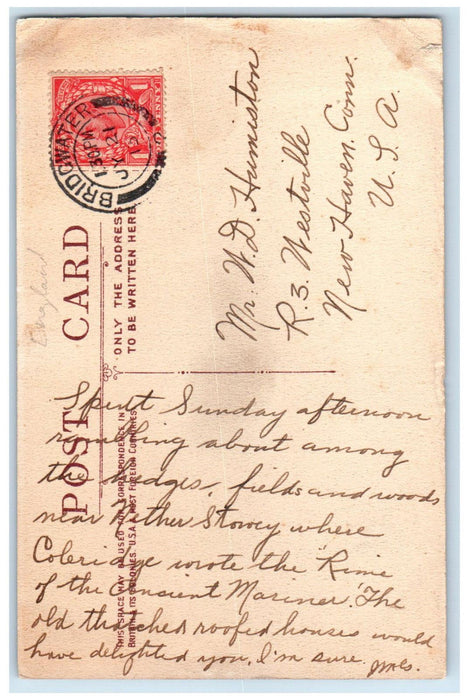 POST CARD
ONLY THE ADDRESS
TO BE WRITTEN HERE
THIS SPACE MAY BE USED FOR CORRESPONDENCE IN
BRITAIN ITS COLONIES. U.S.A. & MOST FOREIGN COUNTRIES
BRIDGWATER
PENNY
England
Mr. W. D. Humiston
R. 3. Westville
New Haven. Conn.
U. S. A.
Spent Sunday afternoon
rambling about among
the hedges, fields and woods
near Nether Stowey where
Coleridge wrote the "Rime
of the Ancient Mariner". The
old thatched roofed houses would
have delighted you, I'm sure.